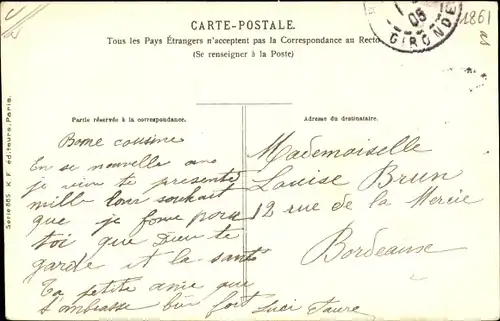 CARTE-POSTALE.
Tous les Pays Étrangers n'acceptent pas la Correspondance au Recto
(Se renseigner à la Poste)
05
GIRONDE
1861
as
Partie réservée à la correspondance.
Adresse du destinataire.
Serie 865 K. F. éditeurs, Paris.
Bonne cousine
En se nouvelle ane
je vien te presente
mille souhait
que je forme pour
toi que Dieu te
garde et la santé
Ta petite amie que
t'embrasse bien fort
Luci Faure
Mademoiselle
Louise Brun
12 rue de la Mercie
Bordeaux